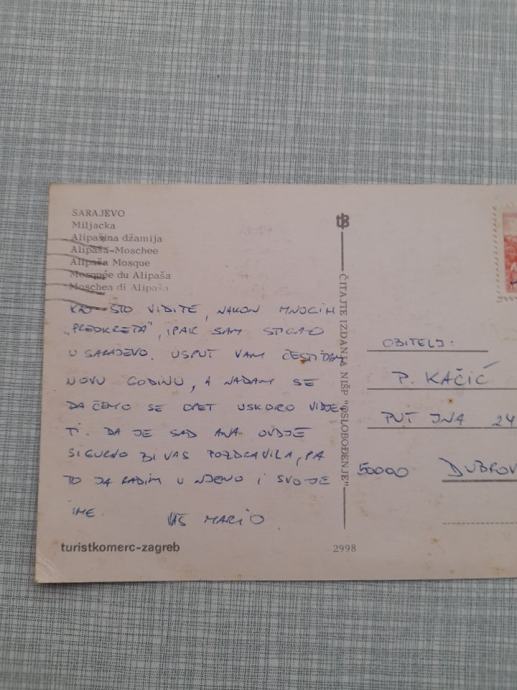 SARAJEVO
Miljacka
Alipašina džamija
Alipaša-Moschee
Alipaša Mosque
Mosquée du Alipaša
Moschea di Alipaša
KAO ŠTO VIDITE, NAKON MNOGIH
"PREOKRETA", IPAK SAM STIGAO
U SARAJEVO. USPUT VAM ČESTITAM
NOVU GODINU, A NADAM SE
DA ĆEMO SE OPET USKORO VIDJE
TI. DA JE SAD ANA OVDJE
SIGURNO BI VAS POZDRAVILA, PA
TO JA RADIM U NJENO I SVOJE
IME VAŠ MARIO
turistkomerc-zagreb
ČITAJTE IZDANJA NIŠP "OSLOBOĐENJE"
2998
OBITELJ:
P. KAČIĆ
PUT JNA 24
50000 DUBROV